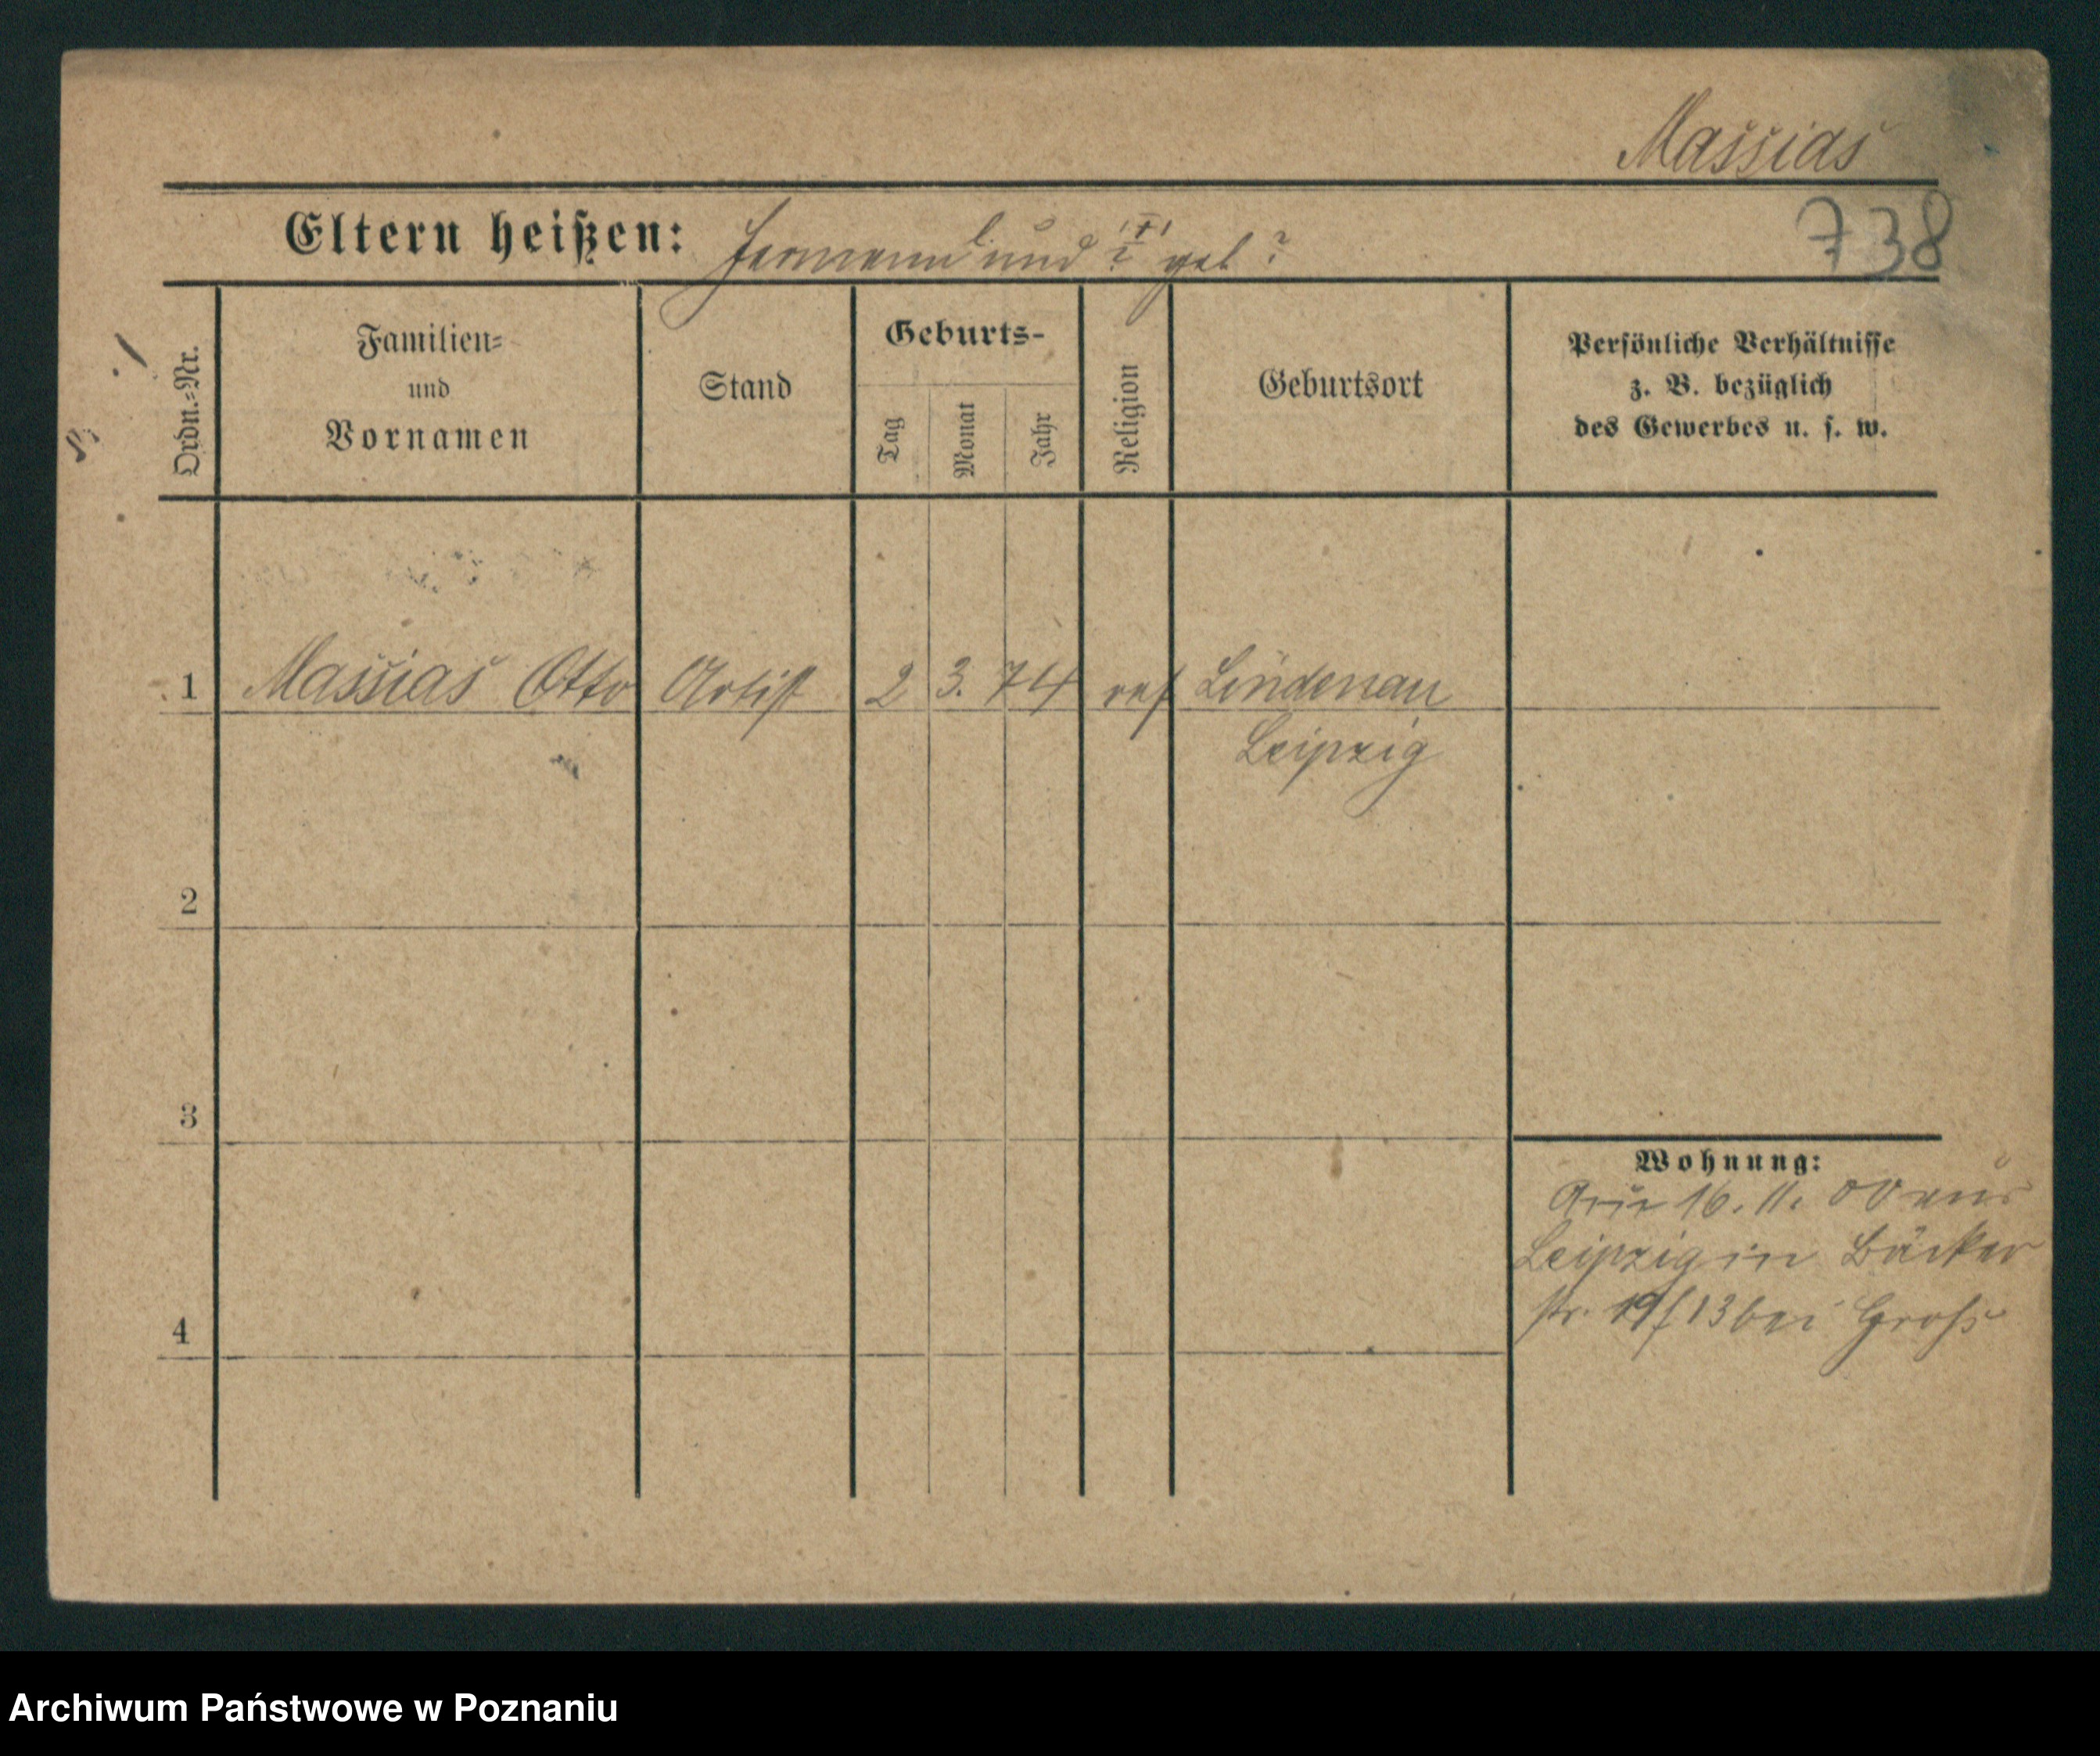 Massias
738
Eltern heißen: Hermann und ? geb ?
Ordn.-Nr.
Familien-
und
Vornamen
Stand
Geburts-
Tag
Monat
Jahr
Religion
Geburtsort
Persönliche Verhältnisse
z. B. bezüglich
des Gewerbes u. s. w.
1 Massias Otto Artist 2 3. 74 ref Lindenau
Leipzig
2
3
4
Wohnung:
16. 11. 00 aus
Leipzig in Bäcker
str. 13 bei Groß
Archiwum Państwowe w Poznaniu